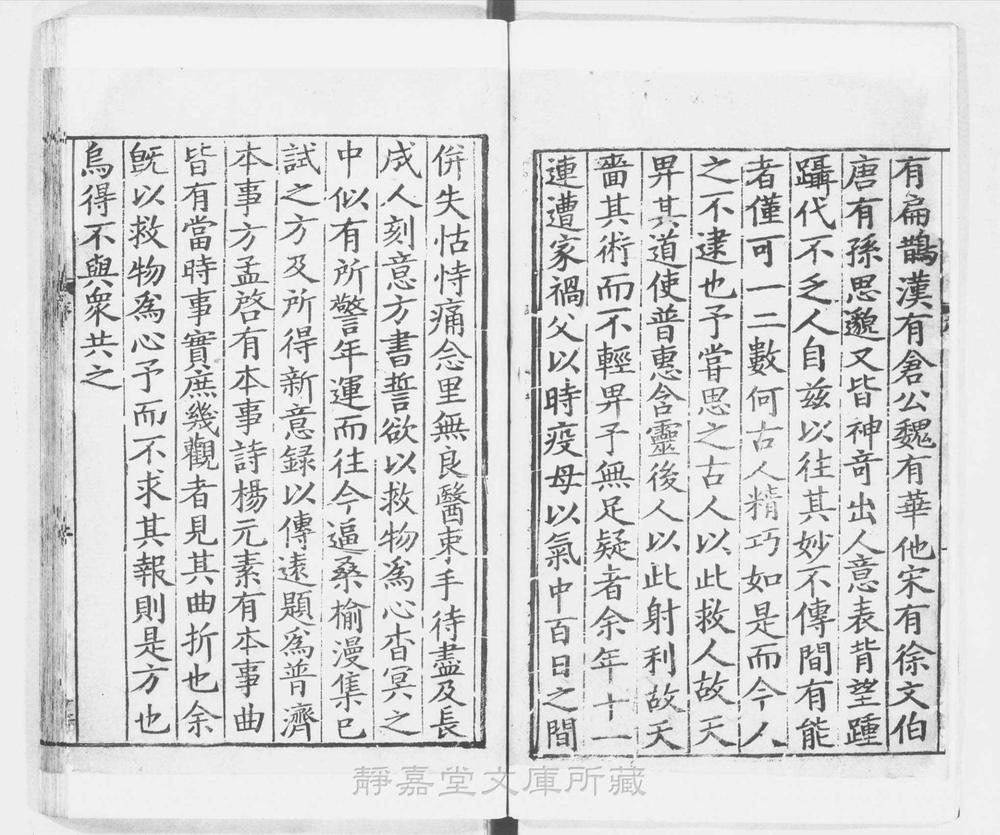 有扁鵲漢有倉公魏有華他宋有徐文伯
唐有孫思邈又皆神竒出人意表背望踵
躡代不乏人自兹以往其妙不傳間有能
者僅可一二數何古人精巧如是而今人
之不逮也予甞思之古人以此救人故天
畀其道使普惠含靈後人以此射利故天
嗇其術而不輕畀予無足疑者余年十一
連遭家禍父以時疫母以氣中百日之間
併失怙恃痛念里無良醫束手待盡及長
成人刻意方書誓欲以救物為心杳冥之
中似有所警年運而往今逼桑榆漫集已
試之方及所得新意録以傳遠題為普濟
本事方孟啓有本事詩楊元素有本事曲
皆有當時事實庶幾觀者見其曲折也余
旣以救物為心予而不求其報則是方也
烏得不與衆共之
靜嘉堂文庫所藏